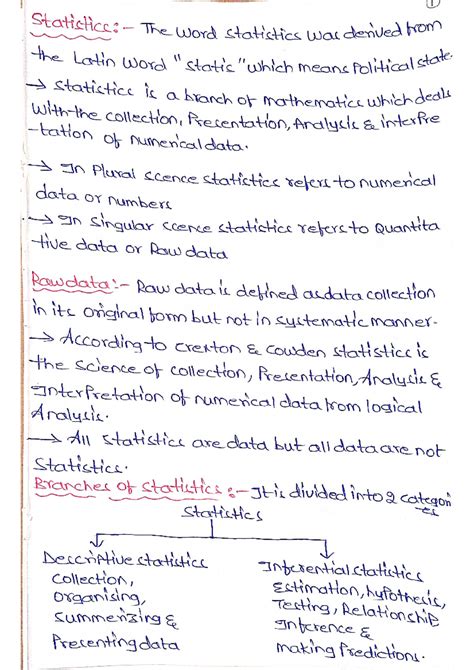 1
Statistics:- The word statistics was derived from
the Latin word "statis" which means Political state.
→ Statistics is a branch of mathematics which deals
with the collection, Presentation, Analysis & interPre
-tation of numerical data.
→ In Plural scence statistics refers to numerical
data or numbers
→ In singular scence statistics refers to Quantita
tive data or Raw data
Raw data:- Raw data is defined as data collection
in its original form but not in systematic manner.
→ According to crexton & cowden statistics is
the science of collection, Presentation, Analysis &
InterPretation of numerical data from logical
Analysis.
→ All statistics are data but all data are not
Statistics.
Branches of statistics:- It is divided into 2 categori
es
Statistics
Descriptive statistics
collection,
organising,
summerizing &
Presenting data
Inferential statistics
Estimation, hypothesis,
Testing, Relationship
Inference &
making Predictions.